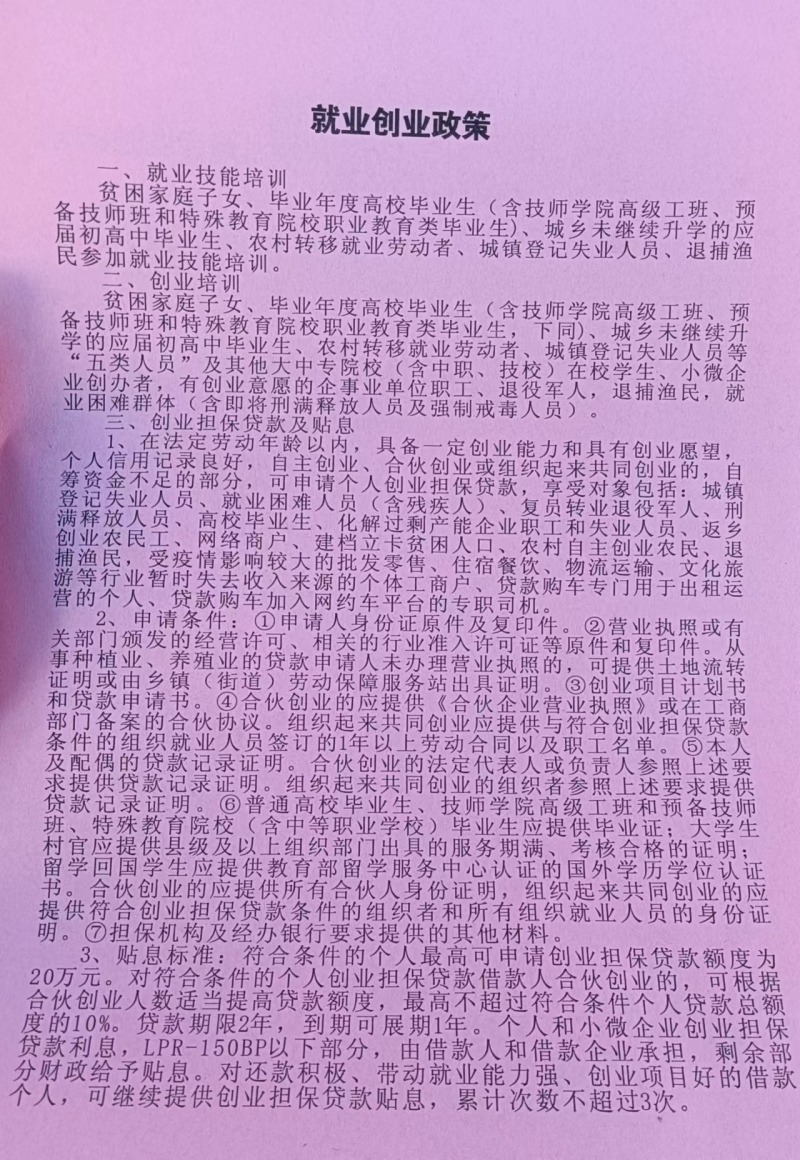 就业创业政策
一、就业技能培训
贫困家庭子女、毕业年度高校毕业生（含技师学院高级工班、预
备技师班和特殊教育院校职业教育类毕业生）、城乡未继续升学的应
届初高中毕业生、农村转移就业劳动者、城镇登记失业人员、退捕渔
民参加就业技能培训。
二、创业培训
贫困家庭子女、毕业年度高校毕业生（含技师学院高级工班、预
备技师班和特殊教育院校职业教育类毕业生，下同）、城乡未继续升
学的应届初高中毕业生、农村转移就业劳动者、城镇登记失业人员等
“五类人员”及其他大中专院校（含中职、技校）在校学生、小微企
业创办者，有创业意愿的企事业单位职工、退役军人，退捕渔民，就
业困难群体（含即将刑满释放人员及强制戒毒人员）。
三、创业担保贷款及贴息
1、在法定劳动年龄以内，具备一定创业能力和具有创业愿望，
个人信用记录良好，自主创业、合伙创业或组织起来共同创业的，自
筹资金不足的部分，可申请个人创业担保贷款，享受对象包括：城镇
登记失业人员、就业困难人员（含残疾人）、复员转业退役军人、刑
满释放人员、高校毕业生、化解过剩产能企业职工和失业人员、返乡
创业农民工、网络商户、建档立卡贫困人口、农村自主创业农民、退
捕渔民，受疫情影响较大的批发零售、住宿餐饮、物流运输、文化旅
游等行业暂时失去收入来源的个体工商户、贷款购车专门用于出租运
营的个人、贷款购车加入网约车平台的专职司机。
2、申请条件：①申请人身份证原件及复印件。②营业执照或有
关部门颁发的经营许可、相关的行业准入许可证等原件和复印件。从
事种植业、养殖业的贷款申请人未办理营业执照的，可提供土地流转
证明或由乡镇（街道）劳动保障服务站出具证明。③创业项目计划书
和贷款申请书。④合伙创业的应提供《合伙企业营业执照》或在工商
部门备案的合伙协议。组织起来共同创业应提供与符合创业担保贷款
条件的组织就业人员签订的1年以上劳动合同以及职工名单。⑤本人
及配偶的贷款记录证明。合伙创业的法定代表人或负责人参照上述要
求提供贷款记录证明。组织起来共同创业的组织者参照上述要求提供
贷款记录证明。⑥普通高校毕业生、技师学院高级工班和预备技师
班、特殊教育院校（含中等职业学校）毕业生应提供毕业证；大学生
村官应提供县级及以上组织部门出具的服务期满、考核合格的证明；
留学回国学生应提供教育部留学服务中心认证的国外学历学位认证
书。合伙创业的应提供所有合伙人身份证明，组织起来共同创业的应
提供符合创业担保贷款条件的组织者和所有组织就业人员的身份证
明。⑦担保机构及经办银行要求提供的其他材料。
3、贴息标准：符合条件的个人最高可申请创业担保贷款额度为
20万元。对符合条件的个人创业担保贷款借款人合伙创业的，可根据
合伙创业人数适当提高贷款额度，最高不超过符合条件个人贷款总额
度的10%。贷款期限2年，到期可展期1年。个人和小微企业创业担保
贷款利息，LPR-150BP以下部分，由借款人和借款企业承担，剩余部
分财政给予贴息。对还款积极、带动就业能力强、创业项目好的借款
个人，可继续提供创业担保贷款贴息，累计次数不超过3次。